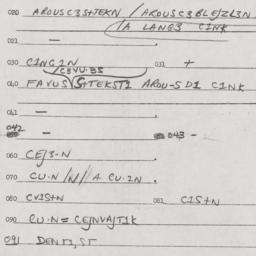 020 AROUSC3S+TEKN / AROUSC3BLE/ZL3N
/A LANG3 C1NK
021 — .
030 C1NG2N . 031 +
040 FAVUS S+TEKST1 AROU-S D1 C1NK
041 — .
042 — . 043 - .
060 CE/3-N .
070 CU·N /N// A CU·2N .
080 CV1S+N 081 C1S+N
090 CU·N = CE/NVA/T1K
091 DENT1,ST